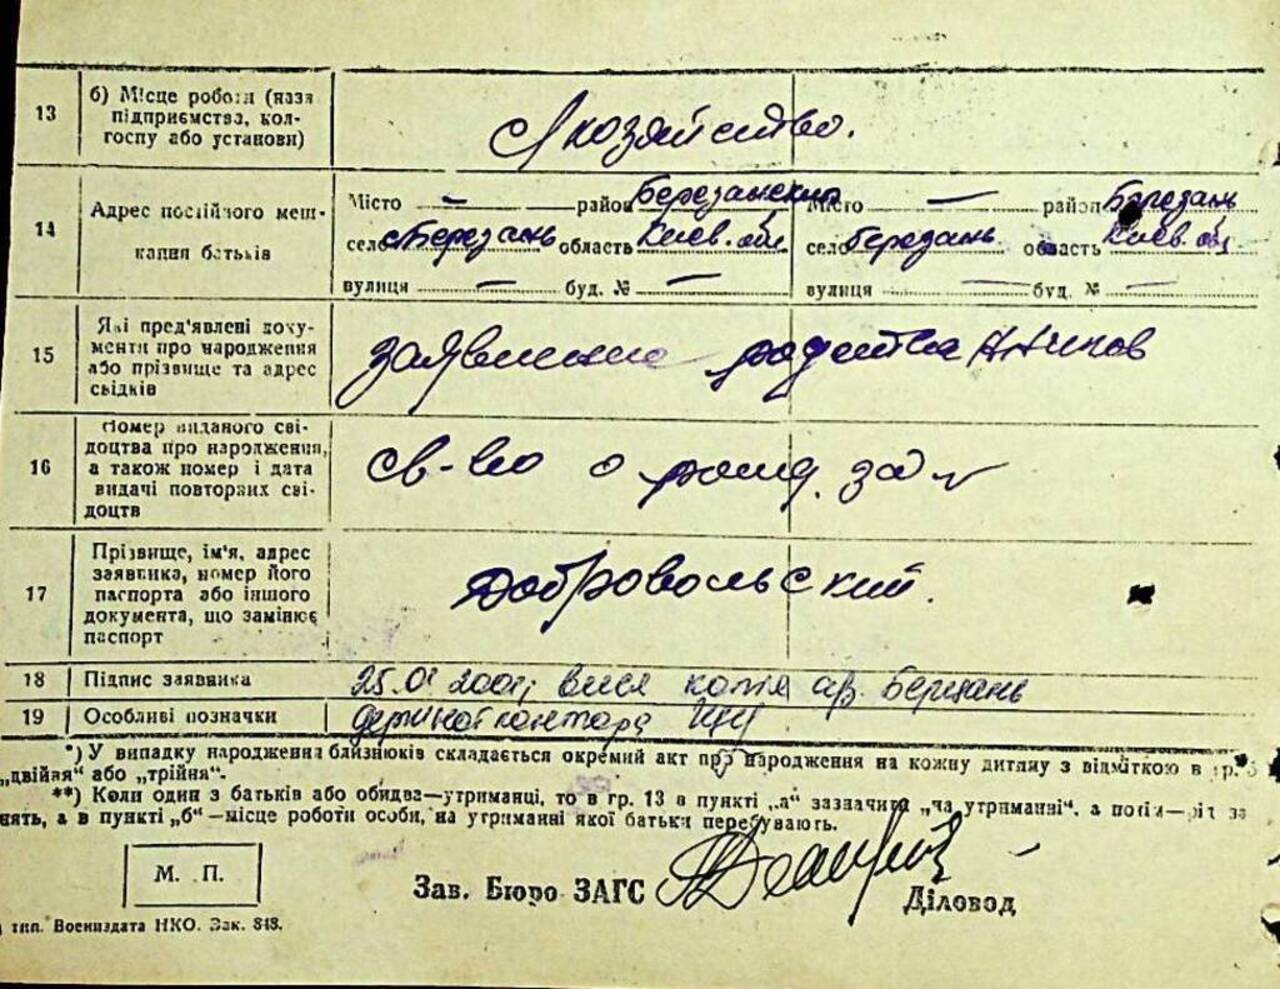 13
б) Місце роботи (назва
підприємства, кол-
госпу або установи)
с/хозяйство.
14
Адрес постійного меш-
кання батьків
Місто — район Березанский Місто — район Березань
село Березань область Киев. обл село Березань область Киев. обл
вулиця — буд. № — вулиця — буд. № —
15
Які пред'явлені доку-
менти про народження
або прізвище та адрес
свідків
заявление
16
Номер виданого сві-
доцтва про народження,
а також номер і дата
видачі повторних сві-
доцтв
св-во о рожд. за №
17
Прізвище, ім'я, адрес
заявника, номер його
паспорта або іншого
документа, що замінює
паспорт
Добровольский.
18 Підпис заявника
копія Березань
19 Особливі позначки
контора
*) У випадку народження близнюків складається окремий акт про народження на кожну дитину з відміткою в гр. 5
„двійня“ або „трійня“.
**) Коли один з батьків або обидва—утриманці, то в гр. 13 в пункті „а“ зазначити „на утриманні“, а потім—рід за
нять, а в пункті „б“—місце роботи особи, на утриманні якої батьки перебувають.
М. П.
Зав. Бюро ЗАГС
Діловод
тип. Воениздата НКО. Зак. 848.